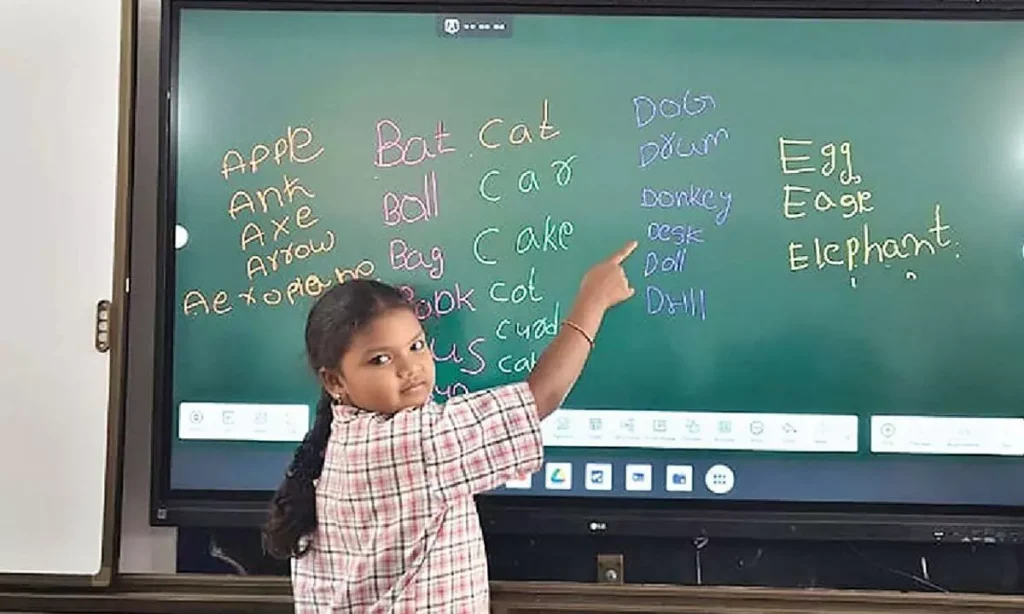 Apple
Ank
Axe
Arrow
Aeroplane
Bat
Ball
Bag
Book
Cat
Car
Cake
Cot
Curd
DOG
Drum
Donkey
Desk
Doll
Drill
Egg
Eage
Elephant.
LG